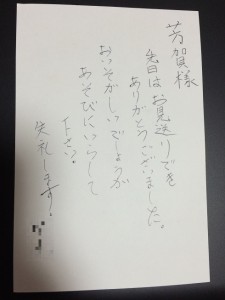 芳賀様
先日はお見送りでを
ありがとうございました。
おいそがしいでしょうが
あそびにいらして
下さい。
失礼します。